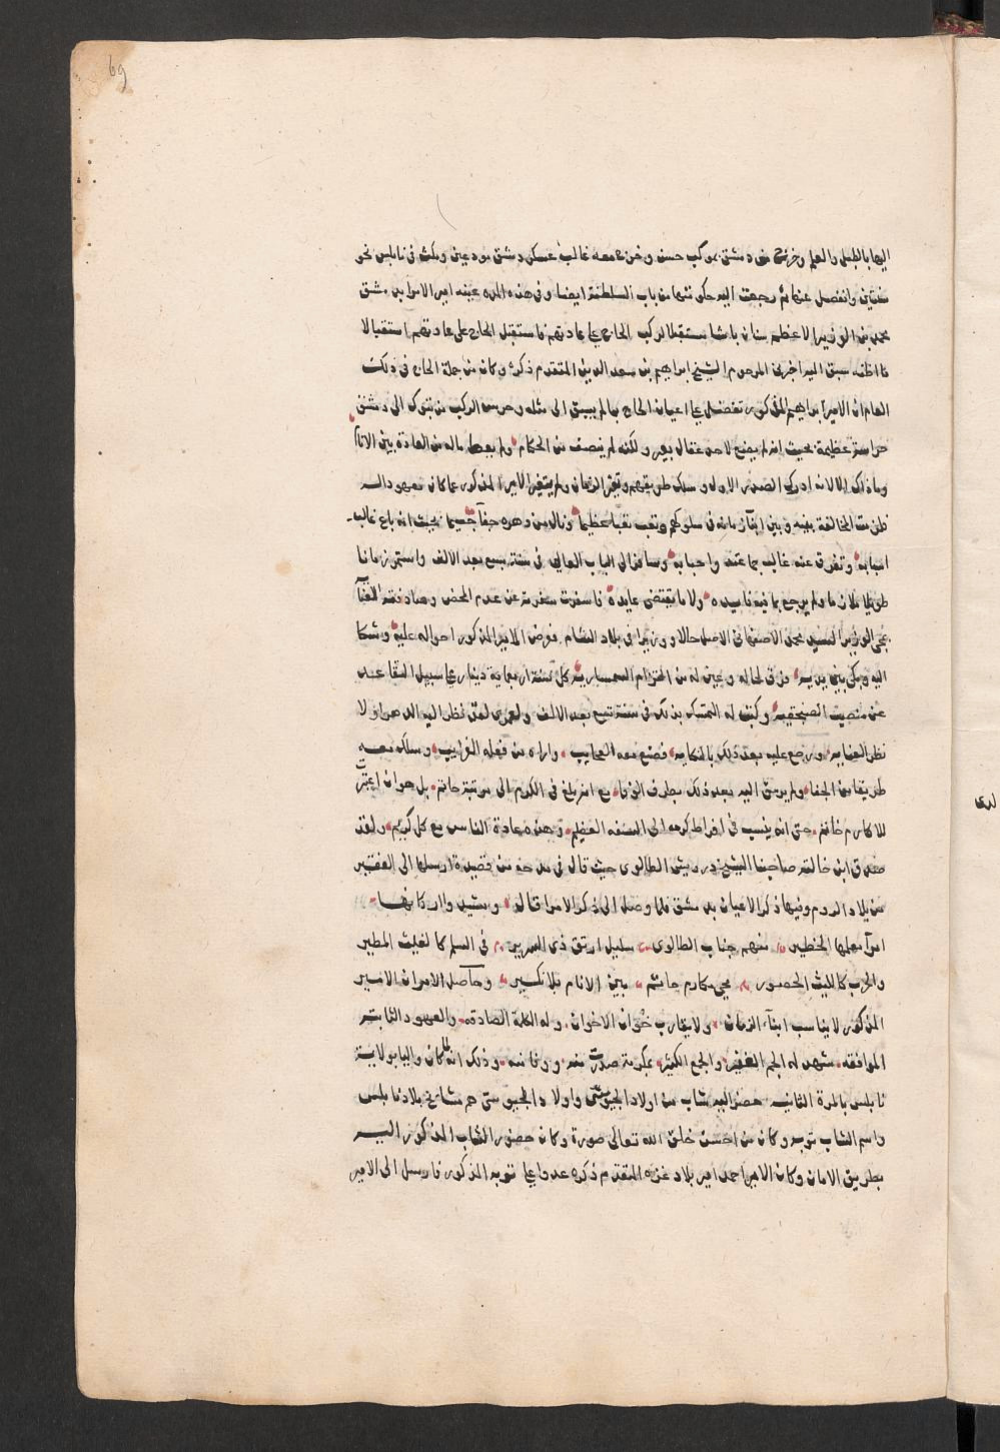 69
اليها بالطبل والعلم وخرج من دمشق بموكب حسن وخرج معه غالب عسكر دمشق مودعين ومكث في نابلس نحو
سنتين وانفصل عنها ثم رجعت اليه حكومتها من باب السلطنة ايضا وفي هذه المرة عينه امير الامرا بدمشق
محمد بن الوزير الاعظم سنان باشا مستقبلا لركب الحاج على عادتهم فاستقبل الحاج على عادتهم استقبالا
ما اظنه سبق اليه اخبرني المرحوم الشيخ ابراهيم بن سعد الدين المتقدم ذكره وكان من جملة الحاج في ذلك
العام ان الامير ابراهيم المذكور تفضل على اعيان الحاج بما لم يسبق الى مثله وحرس الركب من تبوك الى دمشق
حراسة عظيمة بحيث انه لم يضع لاحد عقال بعير ولكنه لم ينصف من الحكام ولم يعط ماله من العادة بين الانام
وما ذاك الا لانه ادرك الصدر الاول وسلك طريقهم وتغير الزمان ولم يتغير الامير المذكور عما كان معهودا له
المخالفة بينه وبين ابنآ زمانه في سلوكهم وتعب تعبا عظيما ونال من دهره جفآ جسيما بحيث انه باع غالب
اسبابه وتفرق عنه غالب جماعته واحبابه وسافر الى الباب العالي في سنة سبع بعد الالف واستمر زمانا
طويلا ملازما ولم يرجع بما فيه تاييده ولا ما يقتضي عايده فاسفرت سفرته عن عدم الحض وصادفته العنآ
بمجي الوزير السيد محمد الاصفهاني الاصل حالا ووزيرا في بلاد الشام فعرض الامير المذكور احواله عليه وشكا
اليه وبكى بين يديه فرق لحاله وعين له من التزام السمسارية كل سنة اربعماية دينار على سبيل التقاعد
عن منصب الصنجقية وكتب له التمسك بذلك في سنة تسع بعد الالف ولعمري لقد نظر اليه الدهر اولا
نظر العنايه ورجع عليه بعد ذلك بالنكايه فصنع معه العجايب واراه من فعله الغرايب وسلك معه
طريقا من الجفا ولم يرمق اليه بعد ذلك بطرف الوفا مع انه بلغ في الكرم الى مرتبة حاتم بل هو ان اعتبر
للاكارم خاتم حتى انه ينسب في افراط كرمه الى السفه العظيم وهذه عادة الناس مع كل كريم ولقد
صدق ابن خالته صاحبنا الشيخ درويش الطالوي حيث قال في مدحه من قصيدة ارسلها الى الفقير
من بلاد الروم وفيها ذكر الاعيان بدمشق فلما وصل الى ذكر الامرا قال وستيد واركانها
امرآ معملها الخطير منهم جناب الطالوي سليل ارتق ذي السرير في السلم كالغيث المطير
والحرب كالليث الهصور محي مكارم حاتم بين الانام بلا نكير وحاصل الامر ان الامير
المذكور لا يناسب ابنآ الزمان ولا يقارب خوان الاخوان وله الكلمة الصادقه والعهود الثابته
الموافقه شهد له الجم الغفير والجمع الكثير بمكرمة صدرت منه ووفا منه وذلك انه لما كان واليا بولاية
نابلس بالمرة الثانية حضر اليه شاب من اولاد الجيوشي واولاد الجيوشي هم مشايخ بلاد نابلس
واسم الشاب توبه وكان من احسن خلق الله تعالى صورة وكان حضور الشاب المذكور اليه
بطريق الامان وكان الامير احمد امير بلاد غزه المتقدم ذكره عدوا على توبه المذكور فارسل الى الامير